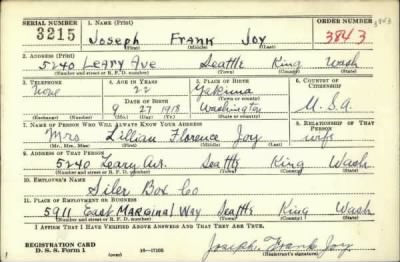 3843
SERIAL NUMBER 1. NAME (Print) ORDER NUMBER
3215 Joseph Frank Joy 3843
(First) (Middle) (Last)
2. ADDRESS (Print)
5240 Leary Ave Seattle King Wash
(Number and street or R. F. D. number) (Town) (County) (State)
3. TELEPHONE 4. AGE IN YEARS 5. PLACE OF BIRTH 6. COUNTRY OF CITIZENSHIP
None 22 Yakima
(Town or county)
DATE OF BIRTH
9 27 1918 Washington U.S.A.
(Exchange) (Number) (Mo.) (Day) (Yr.) (State or country)
7. NAME OF PERSON WHO WILL ALWAYS KNOW YOUR ADDRESS 8. RELATIONSHIP OF THAT PERSON
Mrs Lillian Florence Joy wife
(Mr., Mrs., Miss) (First) (Middle) (Last)
9. ADDRESS OF THAT PERSON
5240 Leary Av. Seattle King Wash
(Number and street or R. F. D. number) (Town) (County) (State)
10. EMPLOYER'S NAME
Siler Box Co
11. PLACE OF EMPLOYMENT OR BUSINESS
5911 East Marginal Way Seattle King Wash
(Number and street or R. F. D. number) (Town) (County) (State)
I AFFIRM THAT I HAVE VERIFIED ABOVE ANSWERS AND THAT THEY ARE TRUE.
REGISTRATION CARD
D. S. S. Form 1 (over) Joseph Frank Joy
(Registrant's signature)